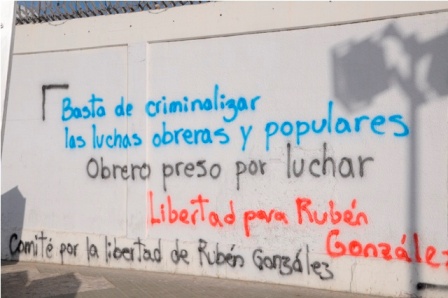 Basta de criminalizar
las luchas obreras y populares
Obrero preso por luchar
Libertad para Rubén
González
Comité por la libertad de Rubén González